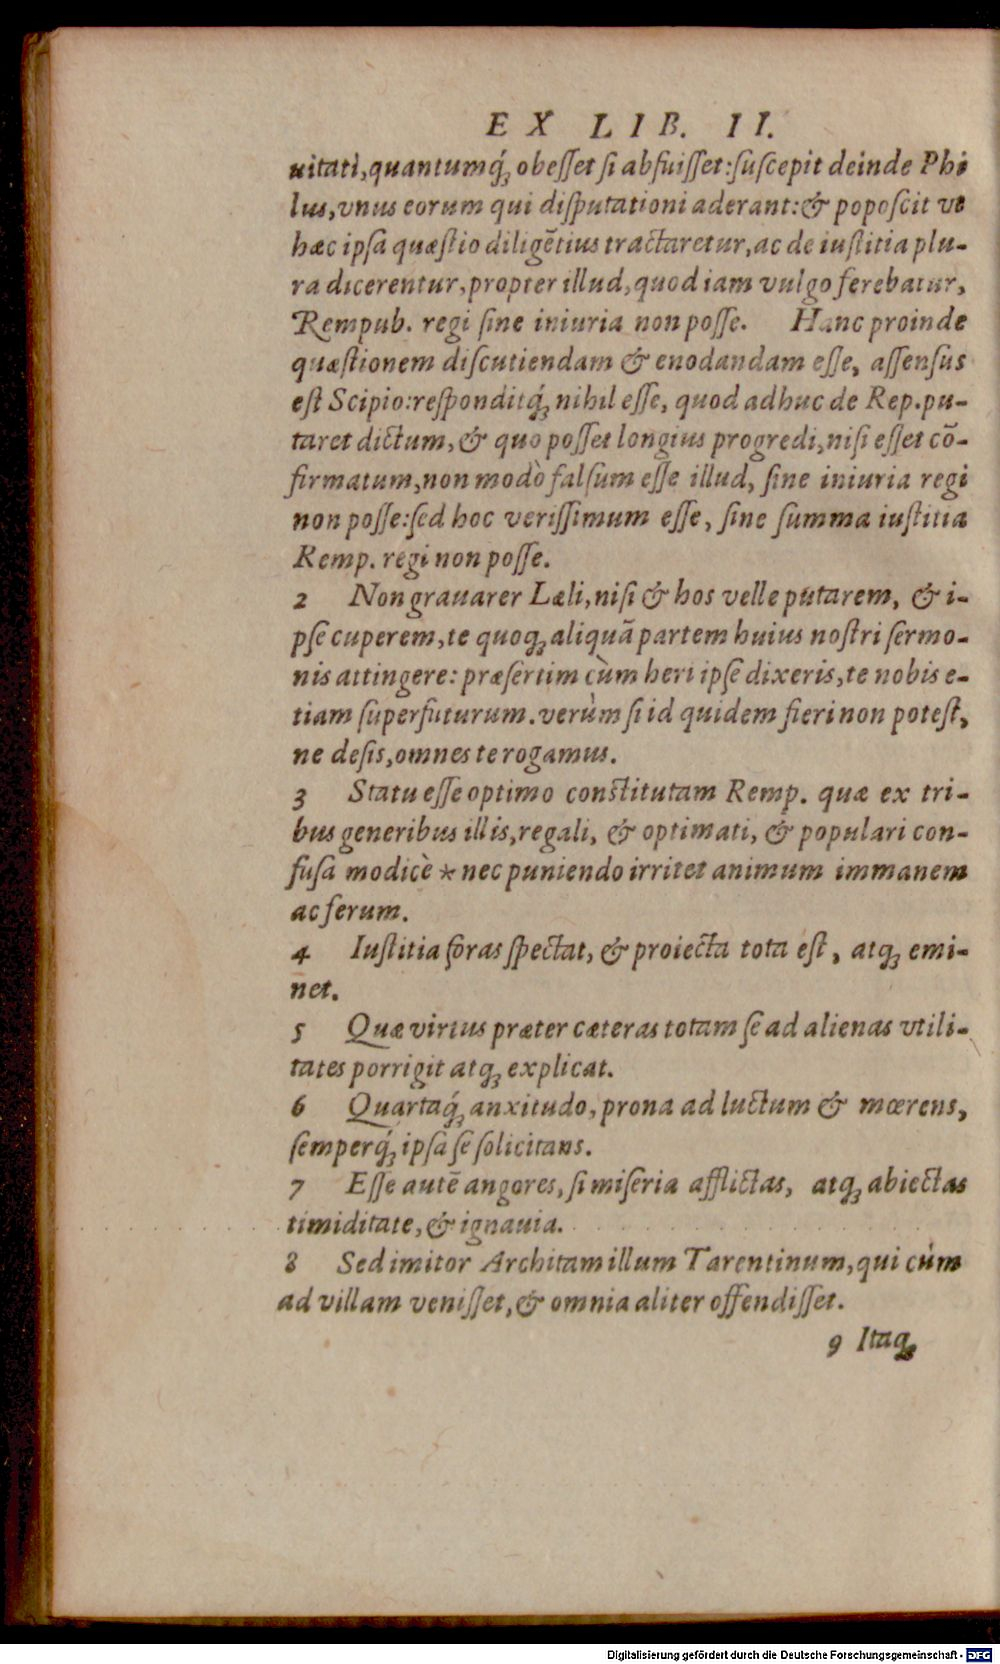 EX LIB. II.
uitati, quantumq́; obeſſet ſi abfuiſſet: ſuſcepit deinde Phi
lus, vnus eorum qui diſputationi aderant: & popoſcit vt
hæc ipſa quæſtio diligẽtius tractaretur, ac de iuſtitia plu-
ra dicerentur, propter illud, quod iam vulgo ferebatur,
Rempub. regi ſine iniuria non poſſe. Hanc proinde
quæſtionem diſcutiendam & enodandam eſſe, aſſenſus
eſt Scipio: reſponditq́; nihil eſſe, quod adhuc de Rep. pu-
taret dictum, & quo poſſet longius progredi, niſi eſſet cõ-
firmatum, non modò falſum eſſe illud, ſine iniuria regi
non poſſe: ſed hoc veriſſimum eſſe, ſine ſumma iuſtitia
Remp. regi non poſſe.
2 Non grauarer Læli, niſi & hos velle putarem, & i-
pſe cuperem, te quoq; aliquã partem huius noſtri ſermo-
nis attingere: præſertim cùm heri ipſe dixeris, te nobis e-
tiam ſuperfuturum. verùm ſi id quidem fieri non poteſt,
ne deſis, omnes te rogamus.
3 Statu eſſe optimo conſtitutam Remp. quæ ex tri-
bus generibus illis, regali, & optimati, & populari con-
fuſa modicè * nec puniendo irritet animum immanem
ac ferum.
4 Iuſtitia foras ſpectat, & proiecta tota eſt, atq; emi-
net.
5 Quæ virtus præter cæteras totam ſe ad alienas vtili-
tates porrigit atq; explicat.
6 Quartaq́; anxitudo, prona ad luctum & mœrens,
ſemperq́; ipſa ſe ſolicitans.
7 Eſſe autẽ angores, ſi miſeria afflictas, atq; abiectas
timiditate, & ignauia.
8 Sed imitor Architam illum Tarentinum, qui cúm
ad villam veniſſet, & omnia aliter offendiſſet.
9 Itaq;
Digitalisierung gefördert durch die Deutsche Forschungsgemeinschaft - DFG